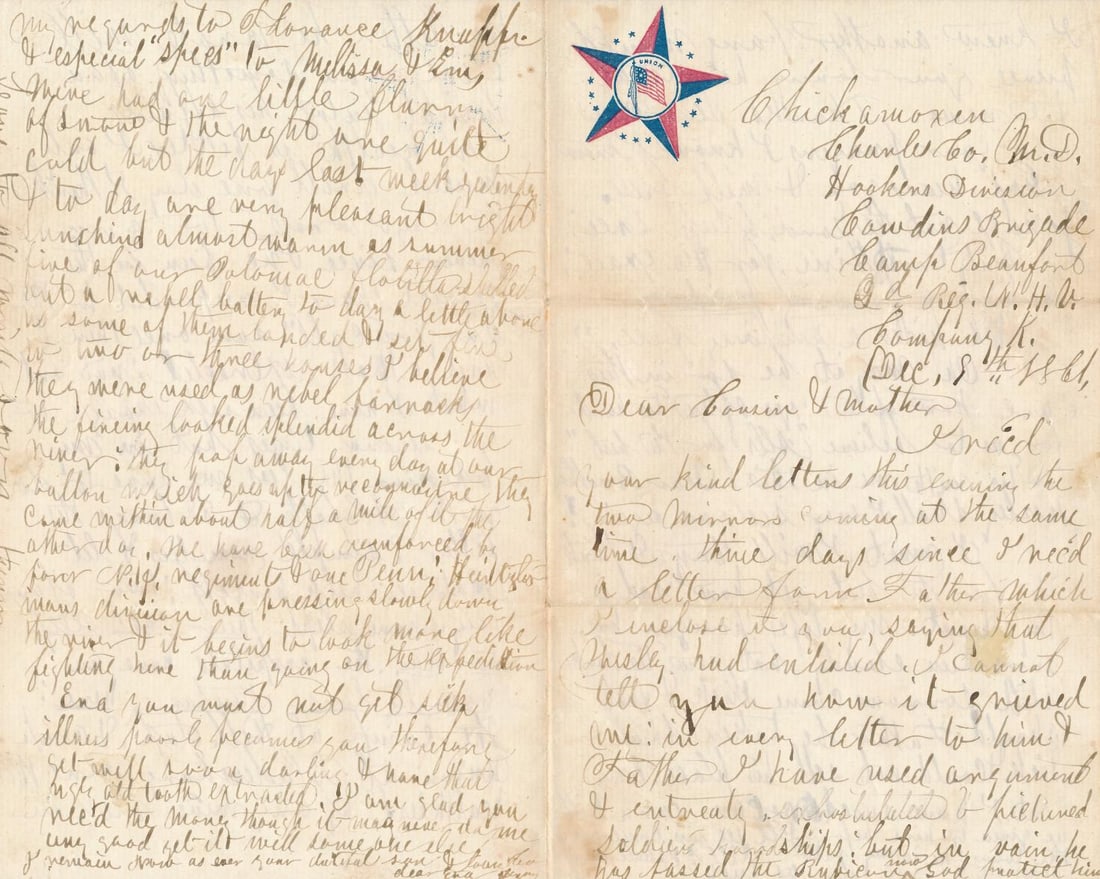 UNION
Chickamoxen
Charles Co. M.D.
Hookers Division
Cowdins Brigade
Camp Beaufort
2d Reg. N. H. V.
Company K.
Dec, 9th 1861,
Dear Cousin & Mother
I rec'd
your kind letters this evening the
two Mirrors coming at the same
time. three days since I rec'd
a letter from Father which
I inclose to you, saying that
Wesley had enlisted. I cannot
tell you how it grieved
me: in every letter to him &
Father I have used argument
& intreaty, expostulated & pictured
soldiers hardships; but in vain, he
has passed the Rubicon now God protect him
my regards to Florance Knapp
& especial "specs" to Melissa & Em,
We've had one little flurry
of snow & the night are quite
cold but the days last week yesterday
& to day are very pleasant bright
sunshine almost warm as summer
five of our Potomac flotilla shelled
out a rebel battery to day a little above
us some of them landed & set fire
to two or three houses I believe
they were used as rebel barracks
the fireing looked splendid across the
river: they pop away every day at our
ballon which goes up to reconnoitre, they
came within about half a mile of it the
other day. We have been reinforced by
four N.Y. regiment & one Penn; Heintzle-
mans division are pressing slowly down
the river & it begins to look more like
fighting here than going on the expedition
Ena you must not get sick
illness poorly becomes you therefore
get well soon darling & have that
ugly old tooth extracted. I am glad you
rec'd the money though it may never do me
any good yet it will some one else
I remain now as ever your dutiful son &
dear Ena